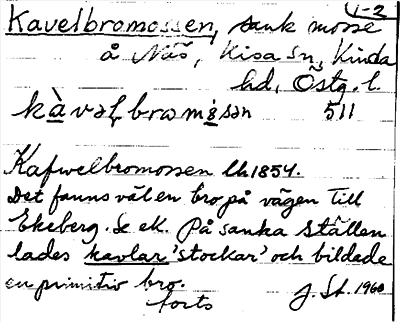 1-2
Kavelbromossen, sank mosse
å Näs, Kisa sn, Kinda
hd, Östg. l.
kàvəl bromȯsən 511
Kafwelbromossen lh 1854.
Det fanns väl en bro på vägen till
Ekeberg. Se ek. På sanka ställen
lades kavlar 'stockar' och bildade
en primitiv bro.
forts J. St. 1960